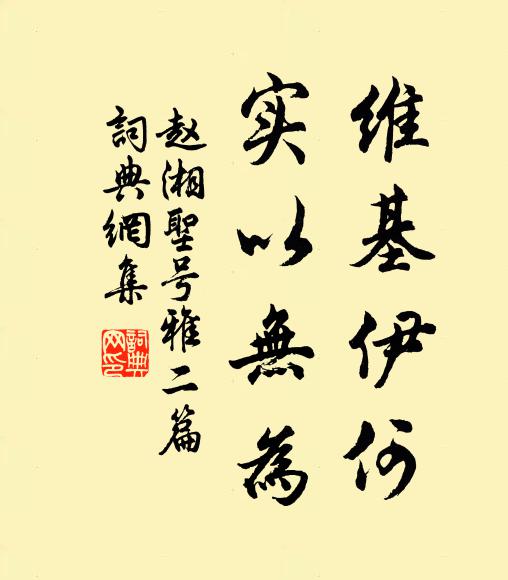 维基伊何
实以無為
赵湘聖号雅二篇
詞典網集
詞典网印